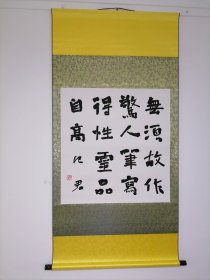 無須故作
驚人筆寫
得性靈品
自高